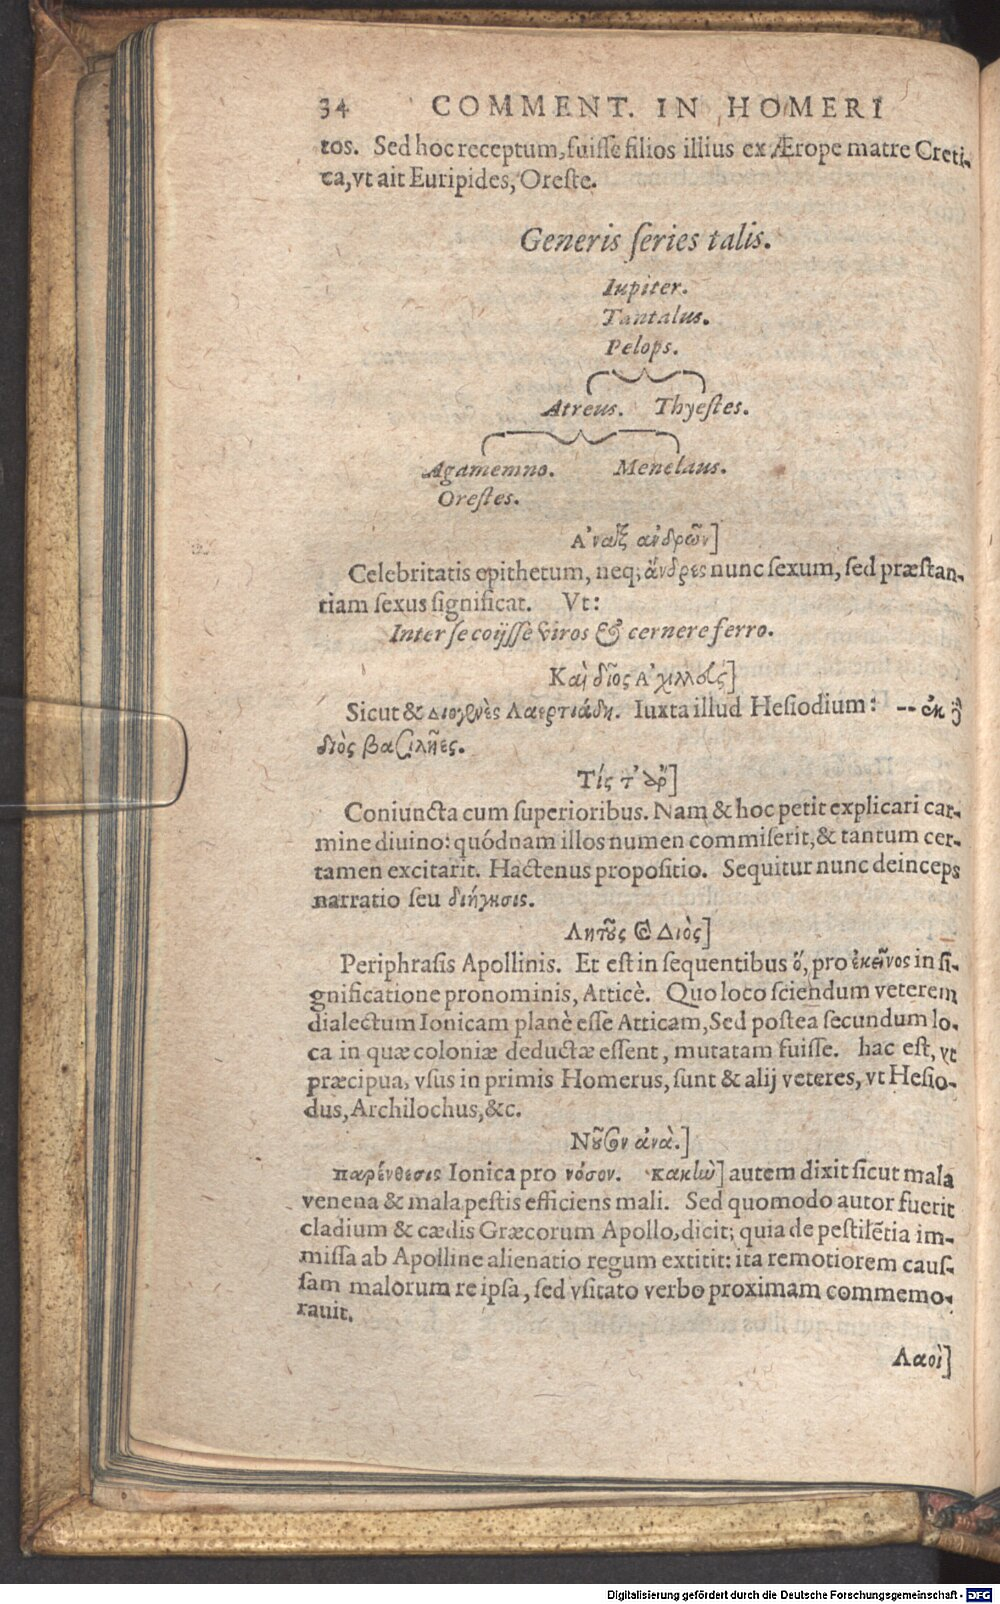 34 COMMENT. IN HOMERI
tos. Sed hoc receptum, fuiſſe filios illius ex Ærope matre Creti-
ca, vt ait Euripides, Oreſte.
Generis ſeries talis.
Iupiter.
Tantalus.
Pelops.
Atreus. Thyeſtes.
Agamemno. Menelaus.
Oreſtes.
Ἀ'ναξ ἀνδρῶν]
Celebritatis epithetum, neq; ἄνδρες nunc ſexum, ſed præſtan-
tiam ſexus ſignificat. Vt:
Inter ſe coijſſe viros & cernere ferro.
Καὶ δῖος Ἀ'χιλλεύς]
Sicut & Διογενὲς Λαερτιάδη. Iuxta illud Heſiodium: -- ἐκ δὲ
διὸς βασιλῆες.
Τίς τ' ἂρ]
Coniuncta cum ſuperioribus. Nam & hoc petit explicari car-
mine diuino: quódnam illos numen commiſerit, & tantum cer-
tamen excitarit. Hactenus propoſitio. Sequitur nunc deinceps
narratio ſeu διήγησις.
Λητοῦς καὶ Διὸς]
Periphraſis Apollinis. Et eſt in ſequentibus ὅ, pro ἐκεῖνος in ſi-
gnificatione pronominis, Atticè. Quo loco ſciendum veterem
dialectum Ionicam planè eſſe Atticam, Sed poſtea ſecundum lo-
ca in quæ coloniæ deductæ eſſent, mutatam fuiſſe. hac eſt, vt
præcipua, vſus in primis Homerus, ſunt & alij veteres, vt Heſio-
dus, Archilochus, &c.
Νοῦσον ἀνὰ.]
παρένθεσις Ionica pro νόσον. κακὴν] autem dixit ſicut mala
venena & mala peſtis efficiens mali. Sed quomodo autor fuerit
cladium & cædis Græcorum Apollo, dicit; quia de peſtilētia im-
miſſa ab Apolline alienatio regum extitit: ita remotiorem cauſ-
ſam malorum re ipſa, ſed vſitato verbo proximam commemo-
rauit.
Λαοὶ]
Digitalisierung gefördert durch die Deutsche Forschungsgemeinschaft - DFG